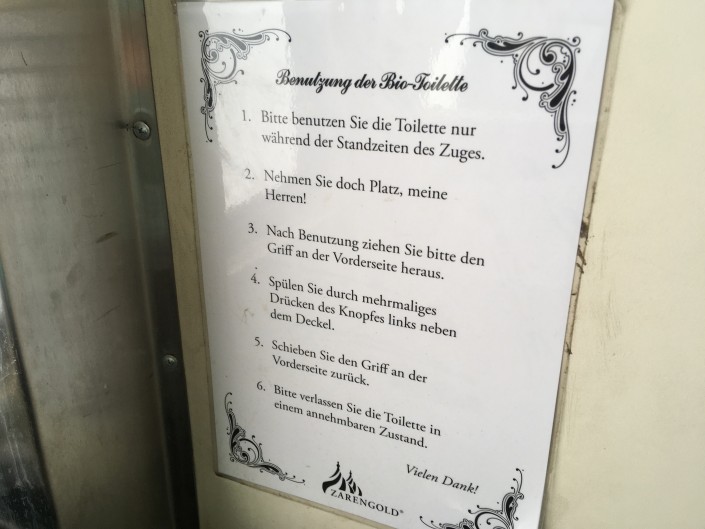 Benutzung der Bio-Toilette
1. Bitte benutzen Sie die Toilette nur
während der Standzeiten des Zuges.
2. Nehmen Sie doch Platz, meine
Herren!
3. Nach Benutzung ziehen Sie bitte den
Griff an der Vorderseite heraus.
4. Spülen Sie durch mehrmaliges
Drücken des Knopfes links neben
dem Deckel.
5. Schieben Sie den Griff an der
Vorderseite zurück.
6. Bitte verlassen Sie die Toilette in
einem annehmbaren Zustand.
Vielen Dank!
ZARENGOLD®